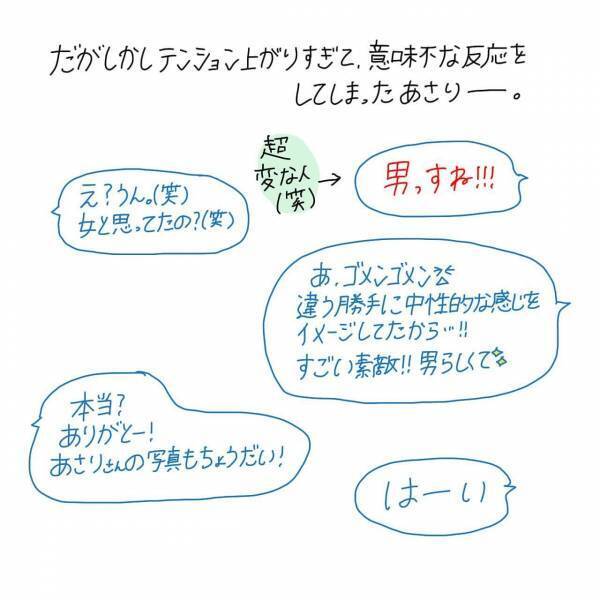 だがしかしテンション上がりすぎて、意味不な反応を
してしまったあさりー。
超
変な人
(笑)
→
男っすね!!!
え?うん。(笑)
女と思ってたの?(笑)
あ、ゴメンゴメン
違う勝手に中性的な感じを
イメージしてたから…!!
すごい素敵!!男らしくて
本当?
ありがとー!
あさりさんの写真もちょうだい!
はーい